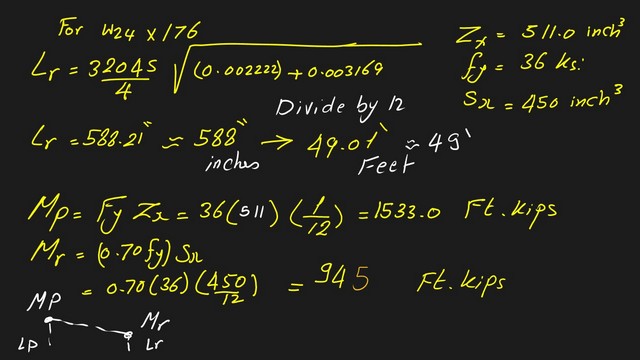 For W24 x 176
Zx = 511.0 inch³
Lr = 32045/4 √(0.002222) + 0.003169
fy = 36 ksi
Sx = 450 inch³
Divide by 12
Lr = 588.21" ≈ 588" inches → 49.01' Feet ≈ 49'
Mp = Fy Zx = 36(511)(1/12) = 1533.0 Ft. kips
Mr = (0.70 fy) Sx
= 0.70(36)(450/12) = 945 Ft. kips
Mp
Mr
Lp
Lr